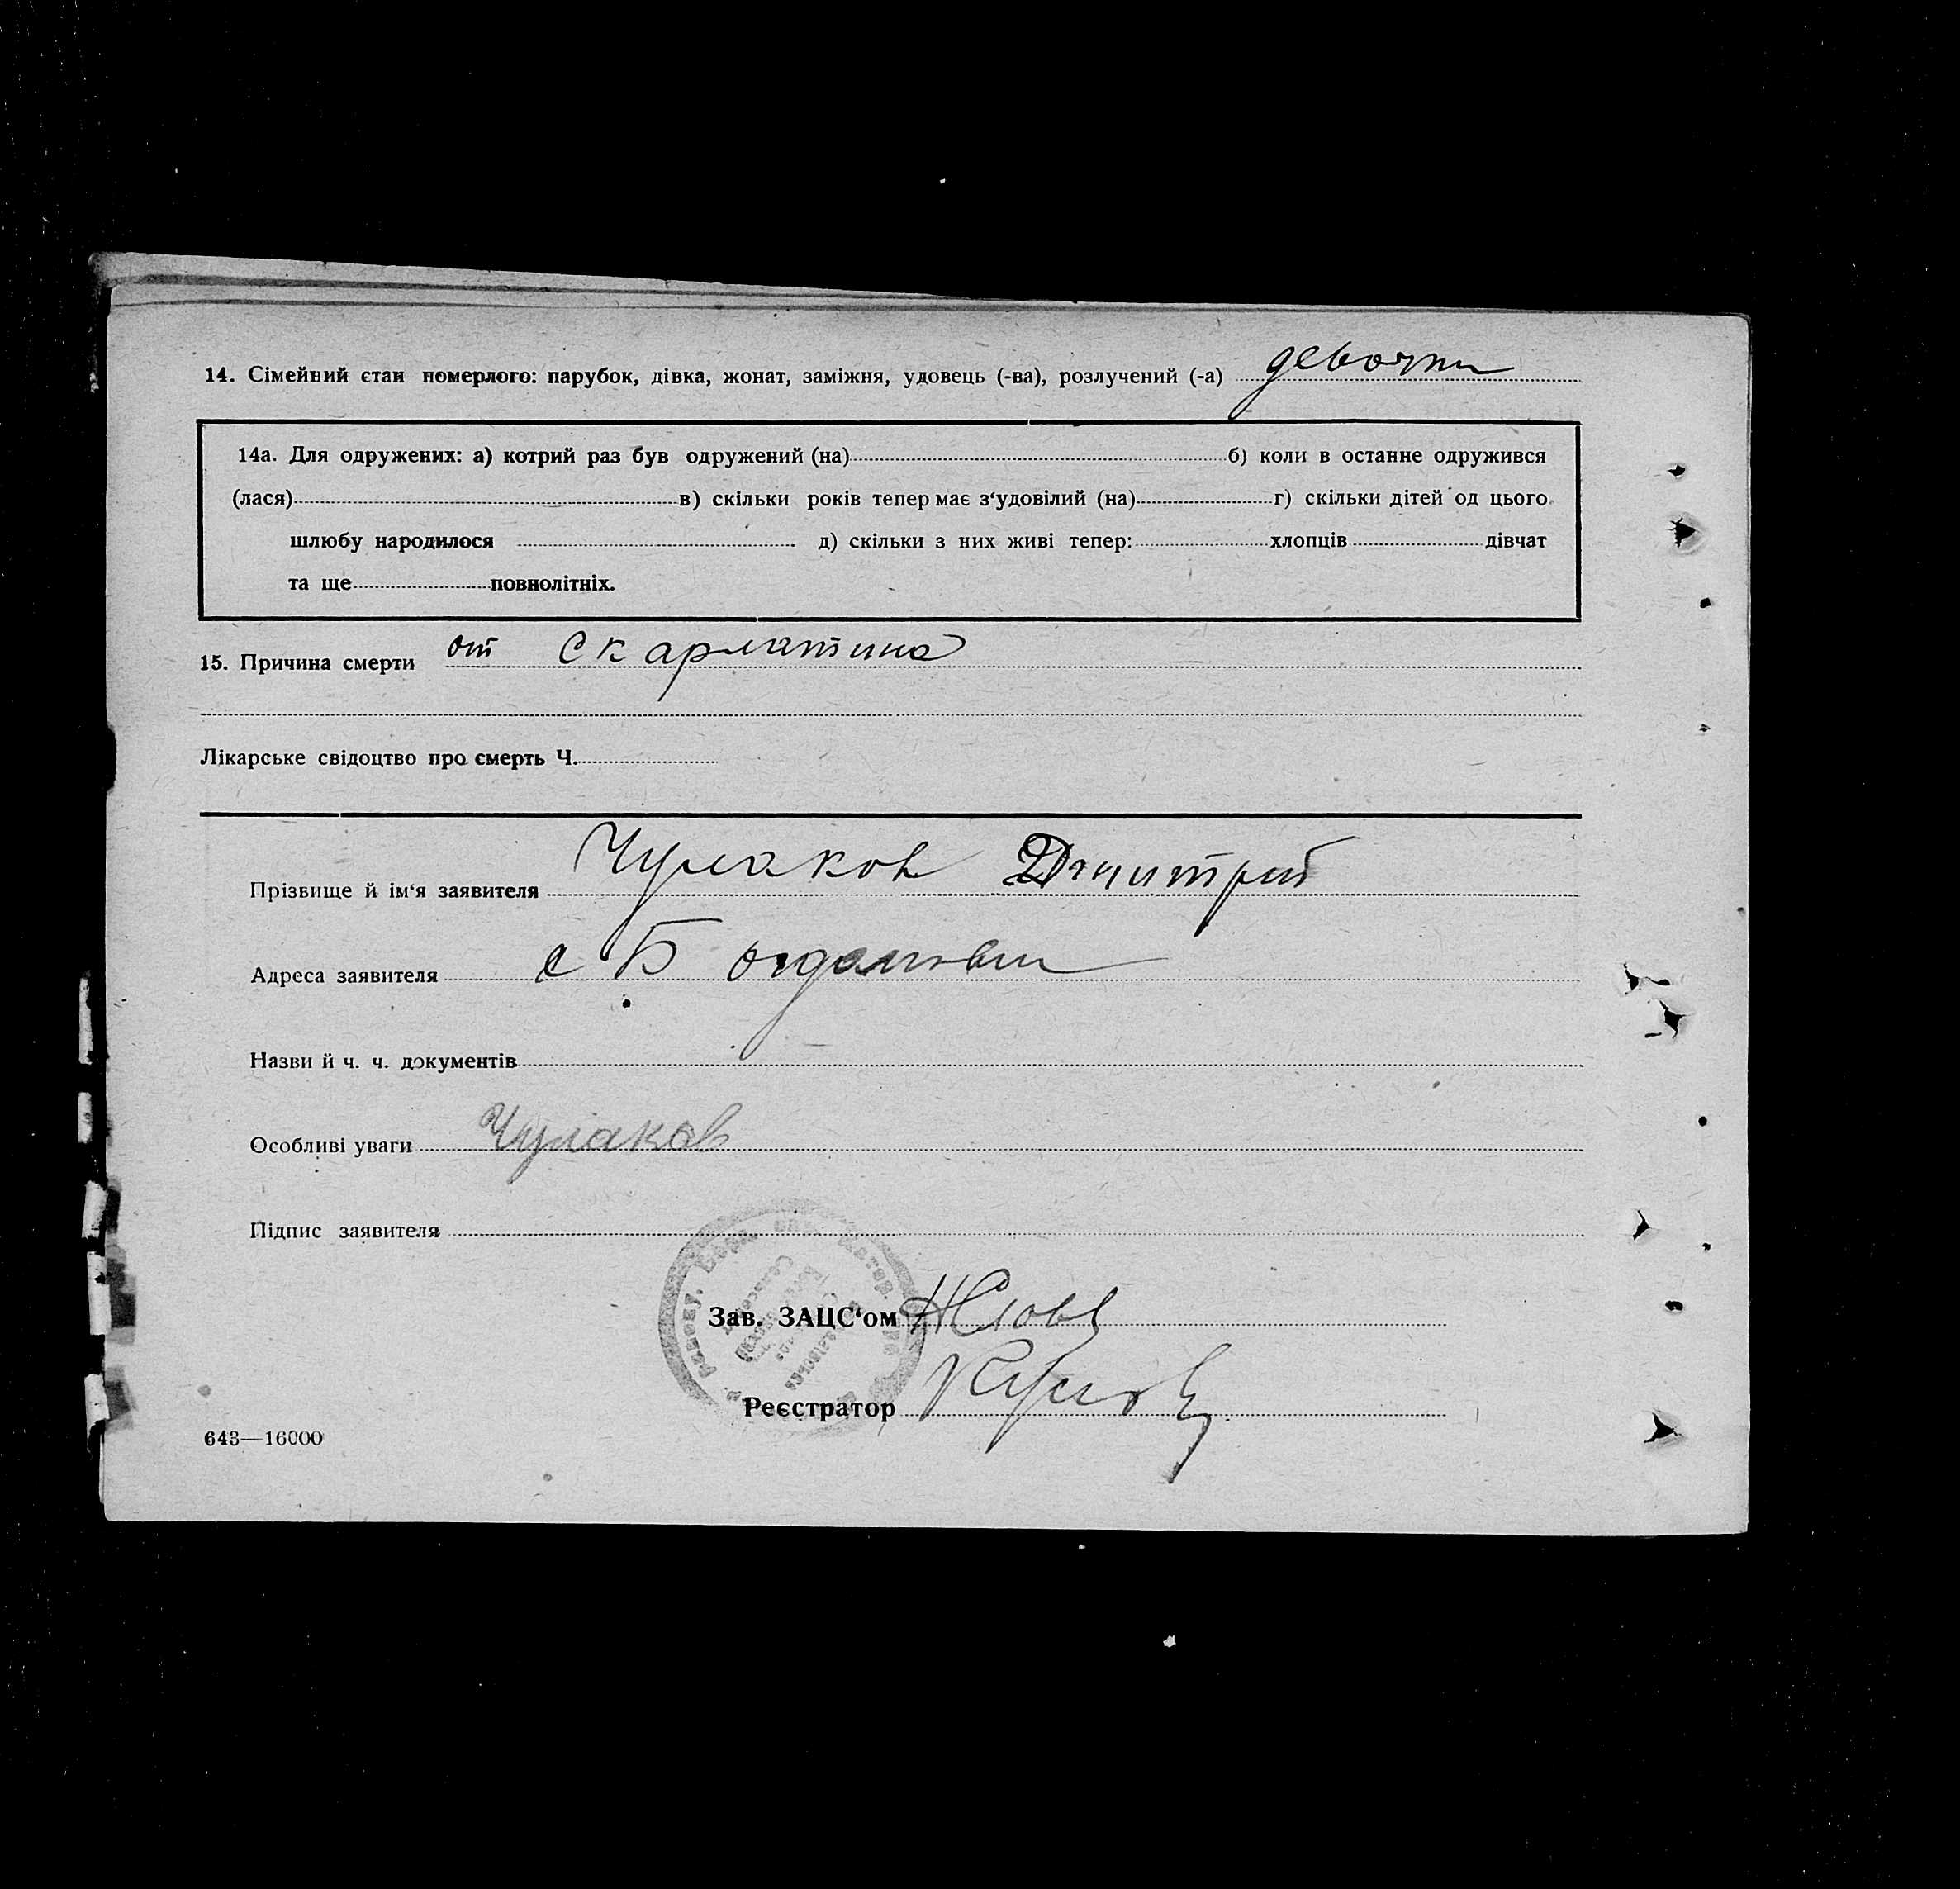 14. Сімейний стан померлого: парубок, дівка, жонат, заміжня, удовець (-ва), розлучений (-а) девочка
14а. Для одружених: а) котрий раз був одружений (на) б) коли в останнє одружився
(лася) в) скільки років тепер має з‘удовілий (на) г) скільки дітей од цього
шлюбу народилося д) скільки з них живі тепер: хлопців дівчат
та ще повнолітніх.
15. Причина смерти от Скарлатина
Лікарське свідоцтво про смерть Ч.
Прізвище й ім‘я заявителя Чулаков Дмитрий
Адреса заявителя с Богдановки
Назви й ч. ч. документів
Особливі уваги Чулаков
Підпис заявителя
Зав. ЗАЦС‘ом
Реєстратор
643—16000